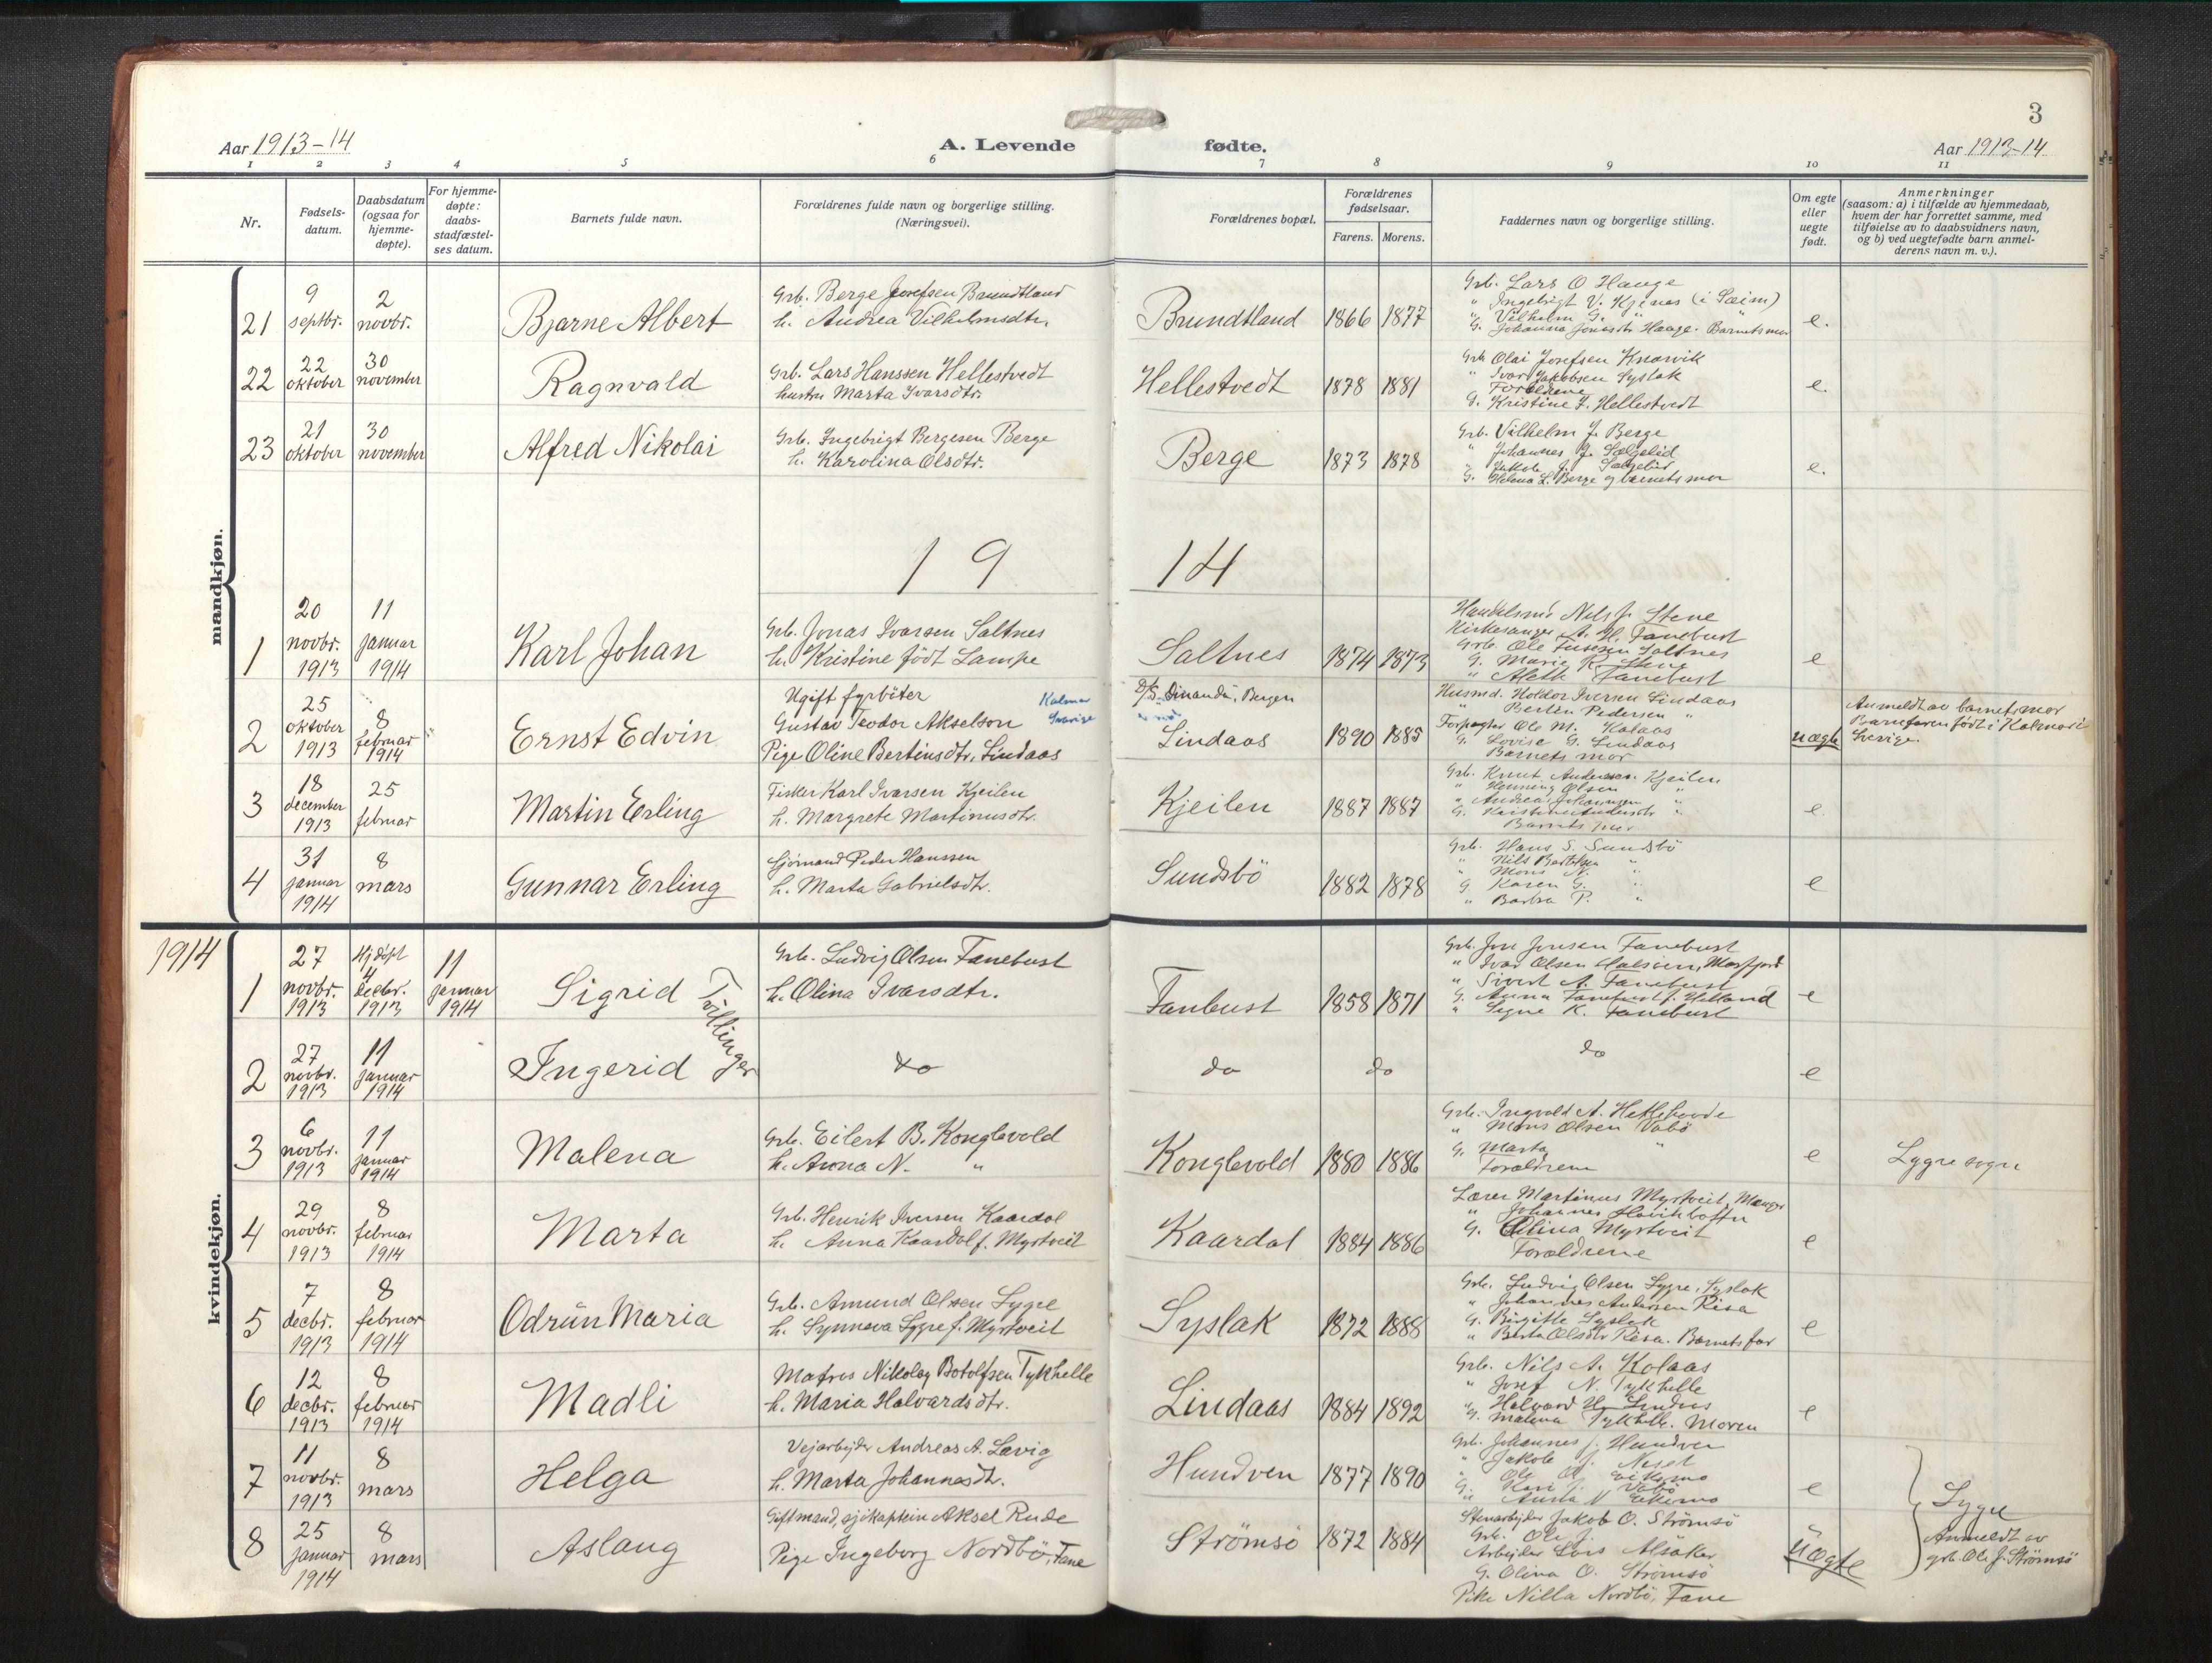 3
Aar 1913-14
A. Levende fødte.
Aar 1913-14
1 2 3 4 5 6 7 8 9 10 11
Nr.
Fødsels-
datum.
Daabsdatum
(ogsaa for
hjemme-
døpte).
For hjemme-
døpte:
daabs-
stadfæstel-
ses datum.
Barnets fulde navn.
Forældrenes fulde navn og borgerlige stilling.
(Næringsvei).
Forældrenes bopæl.
Forældrenes
fødselsaar.
Farens. Morens.
Faddernes navn og borgerlige stilling.
Om egte
eller
uegte
født.
Anmerkninger
(saasom: a) i tilfælde av hjemmedaab,
hvem der har forrettet samme, med
tilføielse av to daabsvidners navn,
og b) ved uegtefødte barn anmel-
derens navn m. v.).
mandkjøn.
21
9
septbr.
2
novbr.
Bjarne Albert
Grb. Berge Josefsen Brundtland
h. Andrea Vilhelmsdtr.
Brundtland
1866 1877
Grb. Lars O Hauge
" Ingebrigt V. Kjenes (i Sæim)
" Vilhelm G. " "
G. Johanna Jonsdtr Hauge. Barnets mor
e.
22
22
oktober
30
november
Ragnvald
Grb. Lars Hanssen Hellestvedt
hustru Marta Ivarsdtr.
Hellestvedt
1878 1881
Grb Olai Josefsen Knarvik
" Ivar Jakobsen Syslak
Forældrene
G. Kristine J. Hellestvedt
e.
23
21
oktober
30
november
Alfred Nikolai
Grb. Ingebrigt Bergesen Berge
h. Karolina Olsdtr.
Berge
1873 1878
Grb. Vilhelm J. Berge
" Johannes J. Sælgelid
" Jakob J. Sælgelid
G. Helena L. Berge og barnets mor
e.
1914
1
20
novbr.
1913
11
januar
1914
Karl Johan
Grb. Jonas Ivarsen Saltnes
h. Kristine født Lampe
Saltnes
1874 1873
Handelsmd Nils J. Stene
Kirkesanger A. H. Fanebust
Grb. Ole Saltnes
G. Marie K. Stene
" Fanebust
e
2
25
oktober
1913
8
februar
1914
Ernst Edvin
Ugift fyrbøter
Gustav Teodor Akselson
Kalmar
Sverige
Pige Oline Bertinsdtr. Lindaas
D/S , Bergen
Lindaas
1890 1885
Husmd. Holdor Iversen Lindaas
" Bertin Pedersen "
Forpagter Ole M. Kolaas
G. Lovise G. Lindaas
Barnets mor
uægte
Anmeldt av barnets mor
Barnefaren født i Kalmar i
Sverige.
3
18
december
1913
25
februar
Martin Erling
Fisker Karl Ivarsen Kjeilen
h. Margrete Martinusdtr.
Kjeilen
1887 1887
Grb. Knut Andersen Kjeilen
" Henning Olsen "
" Andreas Johannesen "
G. Kristine Andersdtr "
Barnets mor
e.
4
31
januar
1914
8
mars
Gunnar Erling
Sjömand Peder Hanssen
h. Marta Gabrielsdtr.
Sundsbö
1882 1878
Grb. Hans S. Sundsbö
" Nils Bertelsen "
" Mons N. "
G. Karen G. "
" Barbra P. "
e
1914
kvindekjøn.
1
27
novbr.
1913
Hj.døpt
4
decbr.
1913
11
januar
1914
Sigrid
Tvillinger
Grb. Ludvig Olsen Fanebust
h. Olina Ivarsdtr.
Fanbust
1858 1871
Grb. Jon Jonsen Fanebust
" Ivar Olsen , Masfjord
" Sivert A. Fanebust
G. Anna Fanebust f. Helland
" Signe K. Fanebust
e
2
27
novbr.
1913
11
januar
1914
Ingerid
do
do
do
do
e
3
6
novbr.
1913
11
januar
1914
Malena
Grb. Eilert B. Konglevold
h. Anna N. "
Konglevold
1880 1886
Grb. Ingvald A. Hetlebovde
" Mons Olsen Vabö
G. Marta "
Forældrene
e
Lygre sogn
4
29
novbr.
1913
8
februar
1914
Marta
Grb. Henrik Iversen Kaardal
h. Anna Kaardal f. Myrtveit
Kaardal
1884 1886
Lærer Martinus Myrtveit, Manger
" Johannes
G. Olina Myrtveit
Forældrene
e
5
7
decbr.
1913
8
februar
1914
Odrün Maria
Grb. Amund Olsen Lygre
h. Synneva Lygre f. Myrtveit
Syslak
1872 1888
Grb. Ludvig Olsen Lygre, Syslak
" Johannes Andersen Risa
G. Birgitte Syslak
" Berta Olsdtr Risa. Barnets far
e
6
12
decbr.
1913
8
februar
1914
Madli
Matros Nikolay Botolfsen Tykhelle
h. Maria Halvardsdtr.
Lindaas
1884 1892
Grb. Nils A. Kolaas
" Josef N. Tykhelle
" Halvard H. Lindaas
G. Malena Tykhelle. Moren
e
7
11
novbr.
1913
8
mars
Helga
Vejarbejder Andreas A. Lævig
h. Marta Johannesdtr.
Hundven
1877 1890
Grb. Johannes J. Hundven
" Jakob J. Neset
" Ole A. Eikemo
G. Kari J. Vabö
" Anna N Eikemo
e
8
25
januar
1914
8
mars
Aslaug
Giftmand, sjökaptein Aksel Rude
Pige Ingeborg Nordbö, Fane
Strömsö
1872 1884
Stenarbejder Jakob O. Strömsö
Grb. Ole J. "
Arbejder Lars Alsaker
G. Olina O. Strömsö
Pike Nilla Nordbö, Fane
uægte
Lygre
Anmeldt av
grb. Ole J. Strömsö